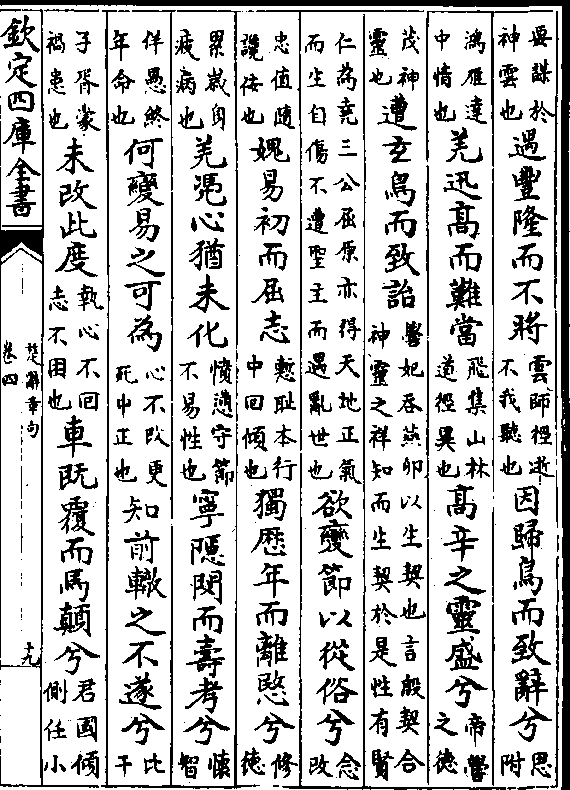 要謀於神雲也遇豐隆而不將雲師徑逝不我聽也因歸鳥而致辭兮思附
鴻雁達中情也羌迅高而難當飛集山林道徑異也高辛之靈盛兮帝嚳之德
茂神靈也遭玄鳥而致詒嚳妃吞燕卵以生契也言殷契合神靈之祥知而生契於是性有賢
仁為堯三公屈原亦得天地正氣而生自傷不遭聖主而遇亂世也欲變節以從俗兮念改
忠值隨讒佞也媿易初而屈志慙耻本行中回傾也獨歷年而離愍兮修德
累歲身疲病也羌馮心猶未化憤懣守節不易性也寧隱閔而壽考兮懷智
佯愚終年命也何變易之可為心不改更死中正也知前轍之不遂兮比干
子胥蒙禍患也未改此度執心不回志不困也車既覆而馬顛兮君國傾側任小
欽定四庫全書
楚辭章句
卷四
十九